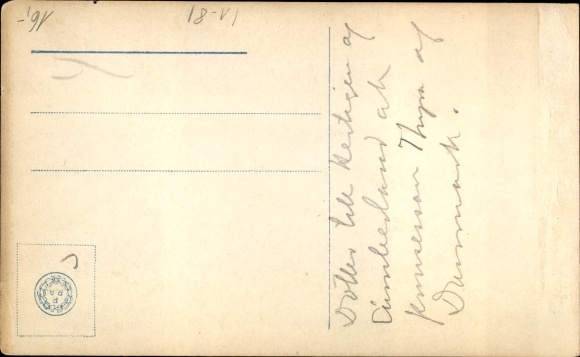 Dotter till Hertigen af
Cumberland och
prinsessan Thyra af
Danmark.